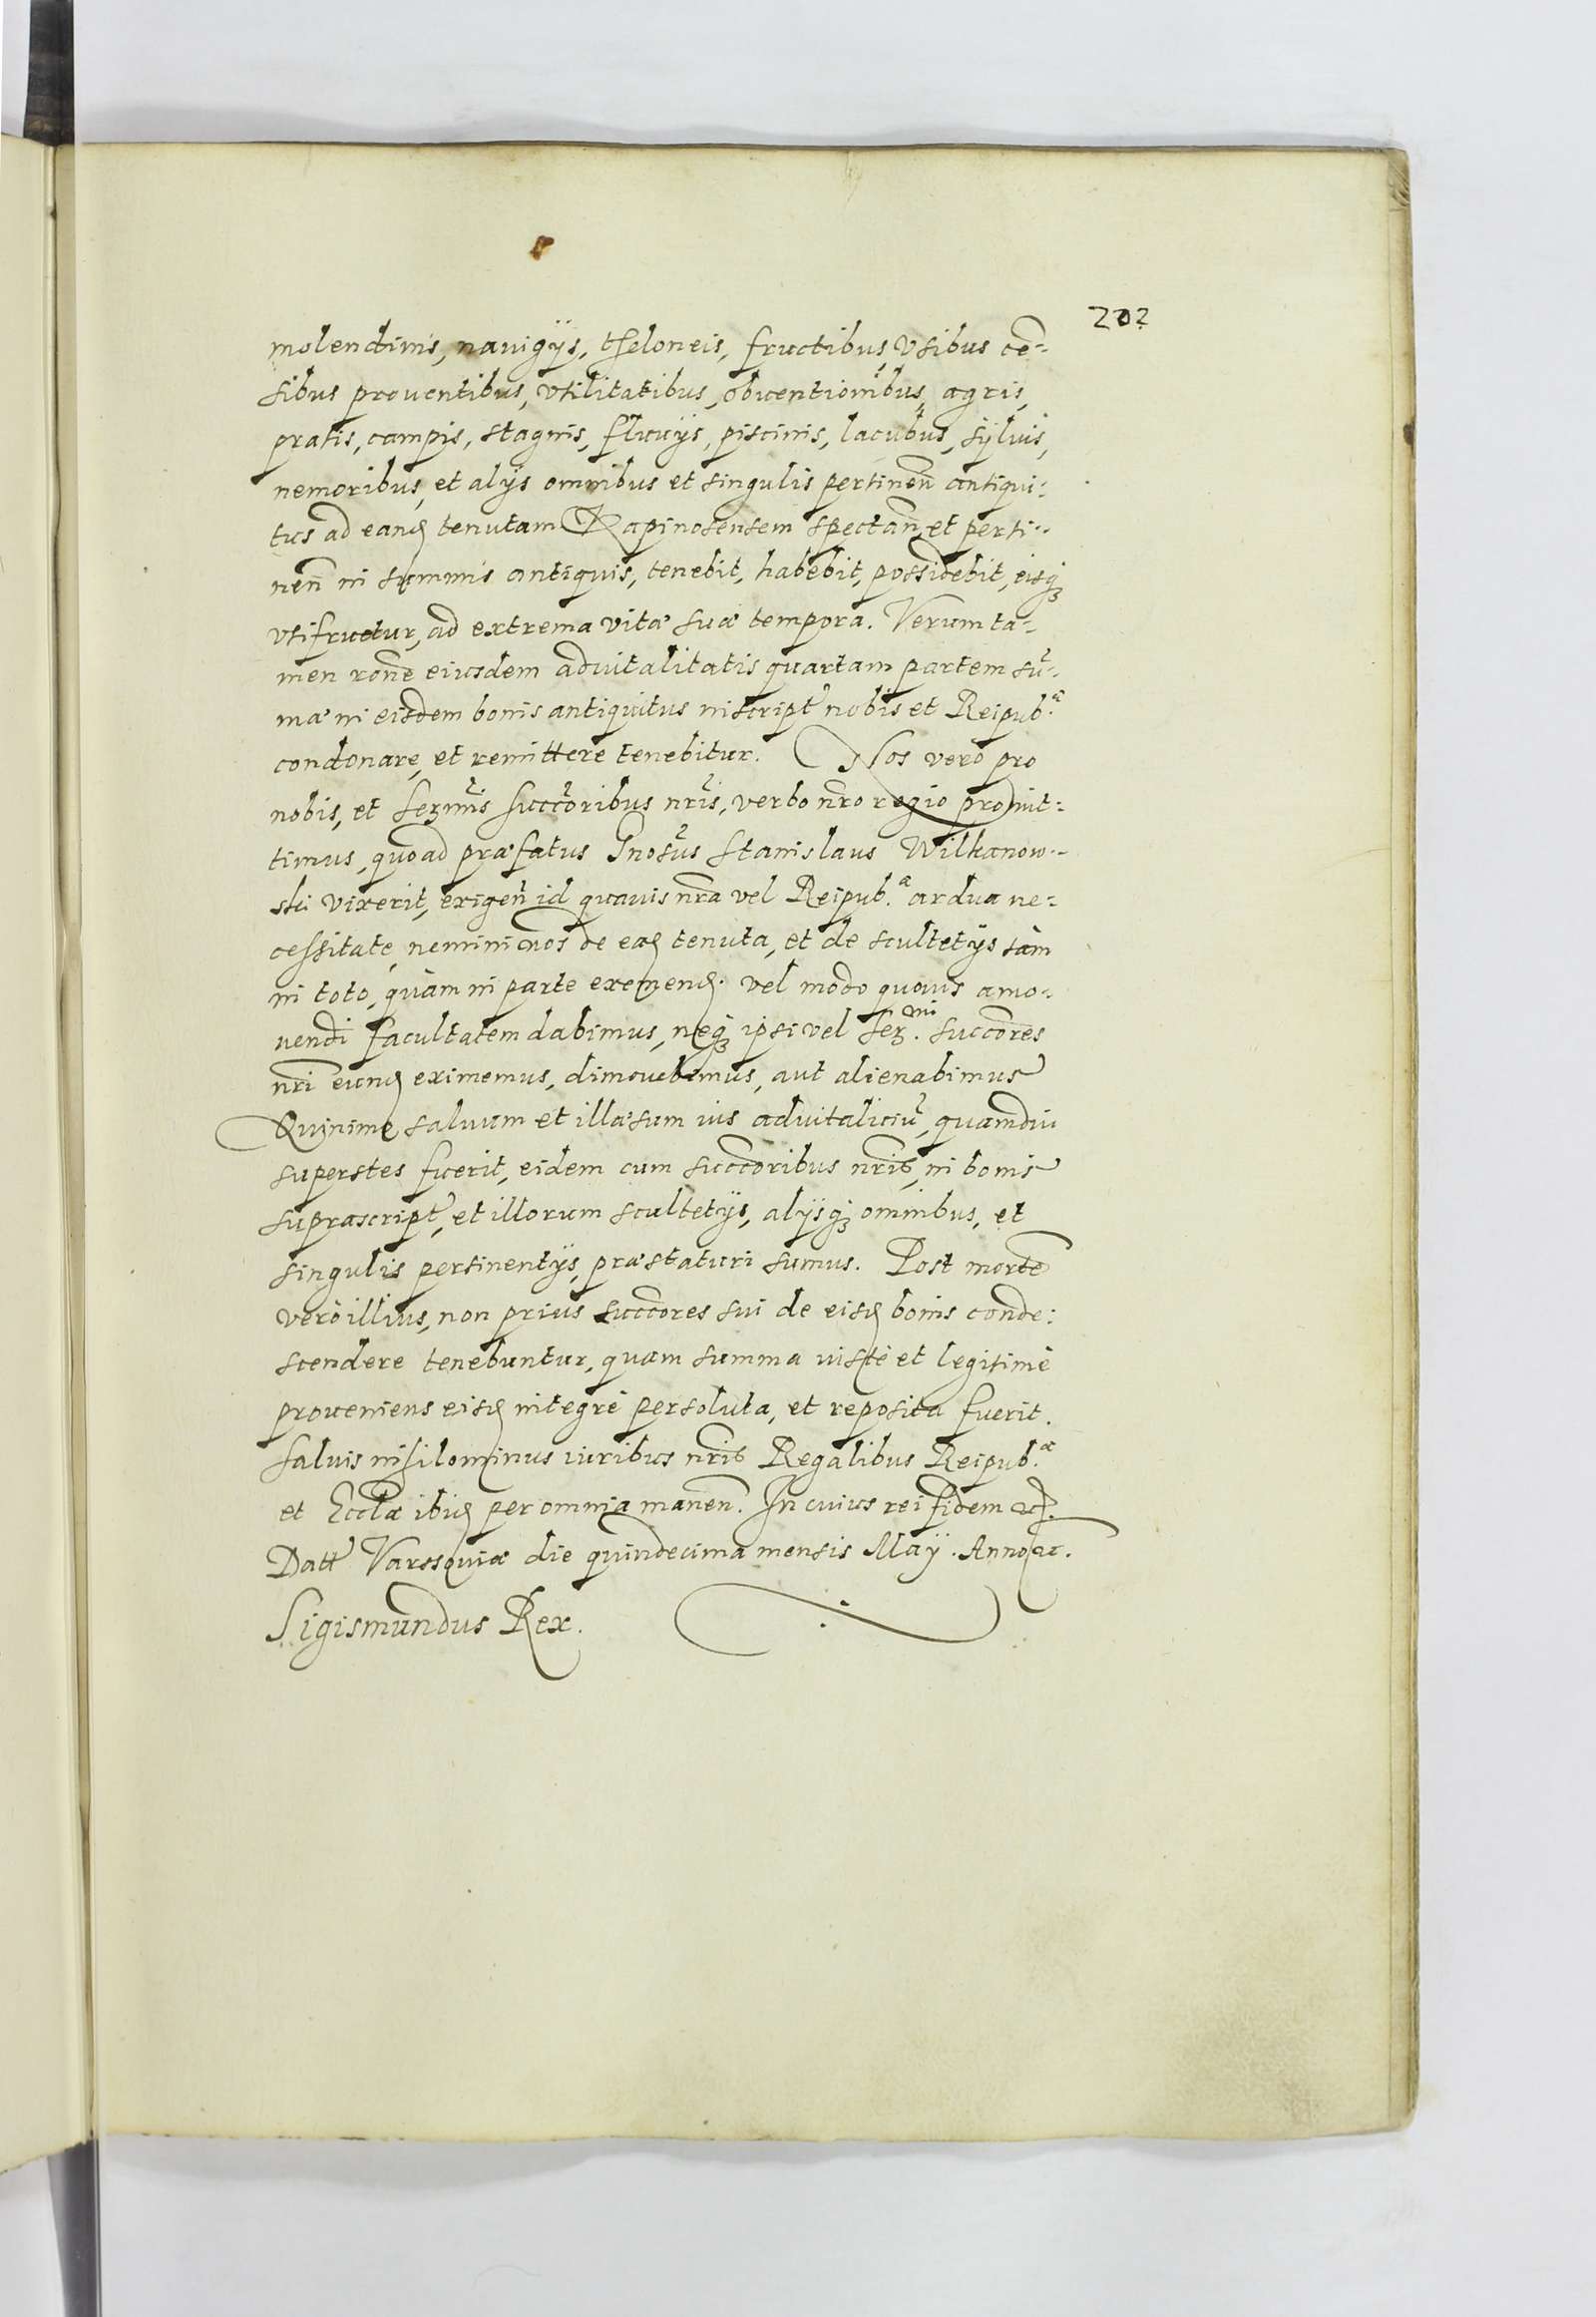 202
molendinis, nauigÿs, theloneis, fructibus, vsibus cē-
sibus prouentibus, vtilitatibus, obuentionibus, agris,
pratis, campis, stagnis, fluuijs, piscinis, lacubus, sÿluis,
nemoribus, et alijs omnibus et singulis pertineñ antiqui:
tus ad eand tenutam Rapinosensem spectañ et perti-
neñ in summis antiquis, tenebit, habebit, possidebit, eisq₃
vtifruetur, ad extrema vitæ suæ tempora. Verum ta-
men rōne eiusdem aduitalitatis quartam partem sū-
mæ in eisdem bonis antiquitus inscript nobis et Reipub.æ
condonare, et remittere tenebitur. Nos vero pro
nobis, et Serm̄is succ̄oribus nr̄is, verbo nr̄o regio promit-
timus, quoad præfatus Gnosus Stanislaus Wilkanow-
ski vixerit, exigeñ id quauis nr̄a vel Reipub.æ ardua ne-
cessitate, nemini nos de ead tenuta, et de scultetÿs tàm
in toto, quàm in parte eximend. vel modo quouis amo-
uendi facultatem dabimus, neq₃ ipsi vel Ser.mi succ̄ores
nr̄i eund eximemus, dimouebimus, aut alienabimus
Quinimo saluum et illæsum ius aduitaliciū, quamdiu
superstes fuerit, eidem cum succ̄oribus nr̄is, in bonis
suprascript, et illorum scultetÿs, alÿsq₃ omnibus, et
singulis pertinentÿs, præstaturi sumus. Post mortē
verò illius, non prius succ̄ores sui de eisd bonis conde:
scendere tenebuntur, quam summa iustè et legitimè
proueniens eisd integrè persoluta, et reposita fuerit.
Saluis nihilominus iuribus nr̄is Regalibus Reipub.æ
et Eccl̄æ ibid per omnia maneñ. In cuius rei fidem etc.
Datt Varssouiæ die quindecima mensis Maÿ. Anno etc.
Sigismundus Rex.